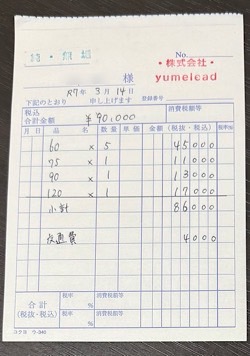 No.
株式会社
yumelead
様
R7年 3月 14日
下記のとおり 申し上げます 登録番号
税込 合計金額 ¥90,000 消費税額等
月 日 品 名 数量 単価 金額(税抜・税込)
60 × 5 45000
75 × 1 11000
90 × 1 13000
120 × 1 17000
小計 86000
交通費 4000
合計 (税抜・税込) 税率 % 消費税額等
税率 % 消費税額等
コクヨ ウ-340